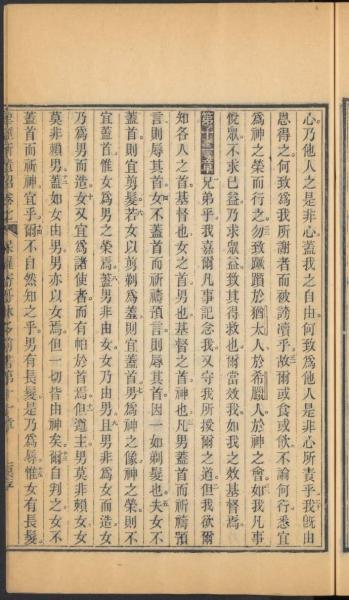 心乃他人之是非心蓋我之自由何致爲他人是非心所責乎我既由
恩得之何致爲我所謝者而被謗瀆乎故爾或食或飲不論何行悉宜
爲神之榮而行之勿致躓於猶太人於希臘人於神之會如我凡事
悅眾不求己益乃求眾益致其得救也爾當效我如我之效基督焉
第十一章兄弟乎我嘉爾凡事記念我又守我所授爾之道但我欲爾
知各人之首基督也女之首男也基督之首神也凡男蓋首而祈禱預
言則辱其首女不蓋首而祈禱預言則辱其首因一如剃髮也夫女不
蓋首則宜剪髮若女以剪剃爲羞則宜蓋首男爲神之像神之榮則不
宜蓋首惟女爲男之榮焉蓋男非由女女乃由男且男非爲女而造女
乃爲男而造女又宜爲諸使者而有帕於首焉但道主男莫非賴女女
莫非賴男蓋如女由男男亦以女焉但一切皆由神矣爾自判之女不
蓋首而祈神宜乎爾不自然知之乎男有長髮是乃爲辱惟女有長髮